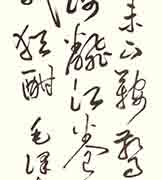 未下鞍驚
海翻江卷
犹酣 毛泽